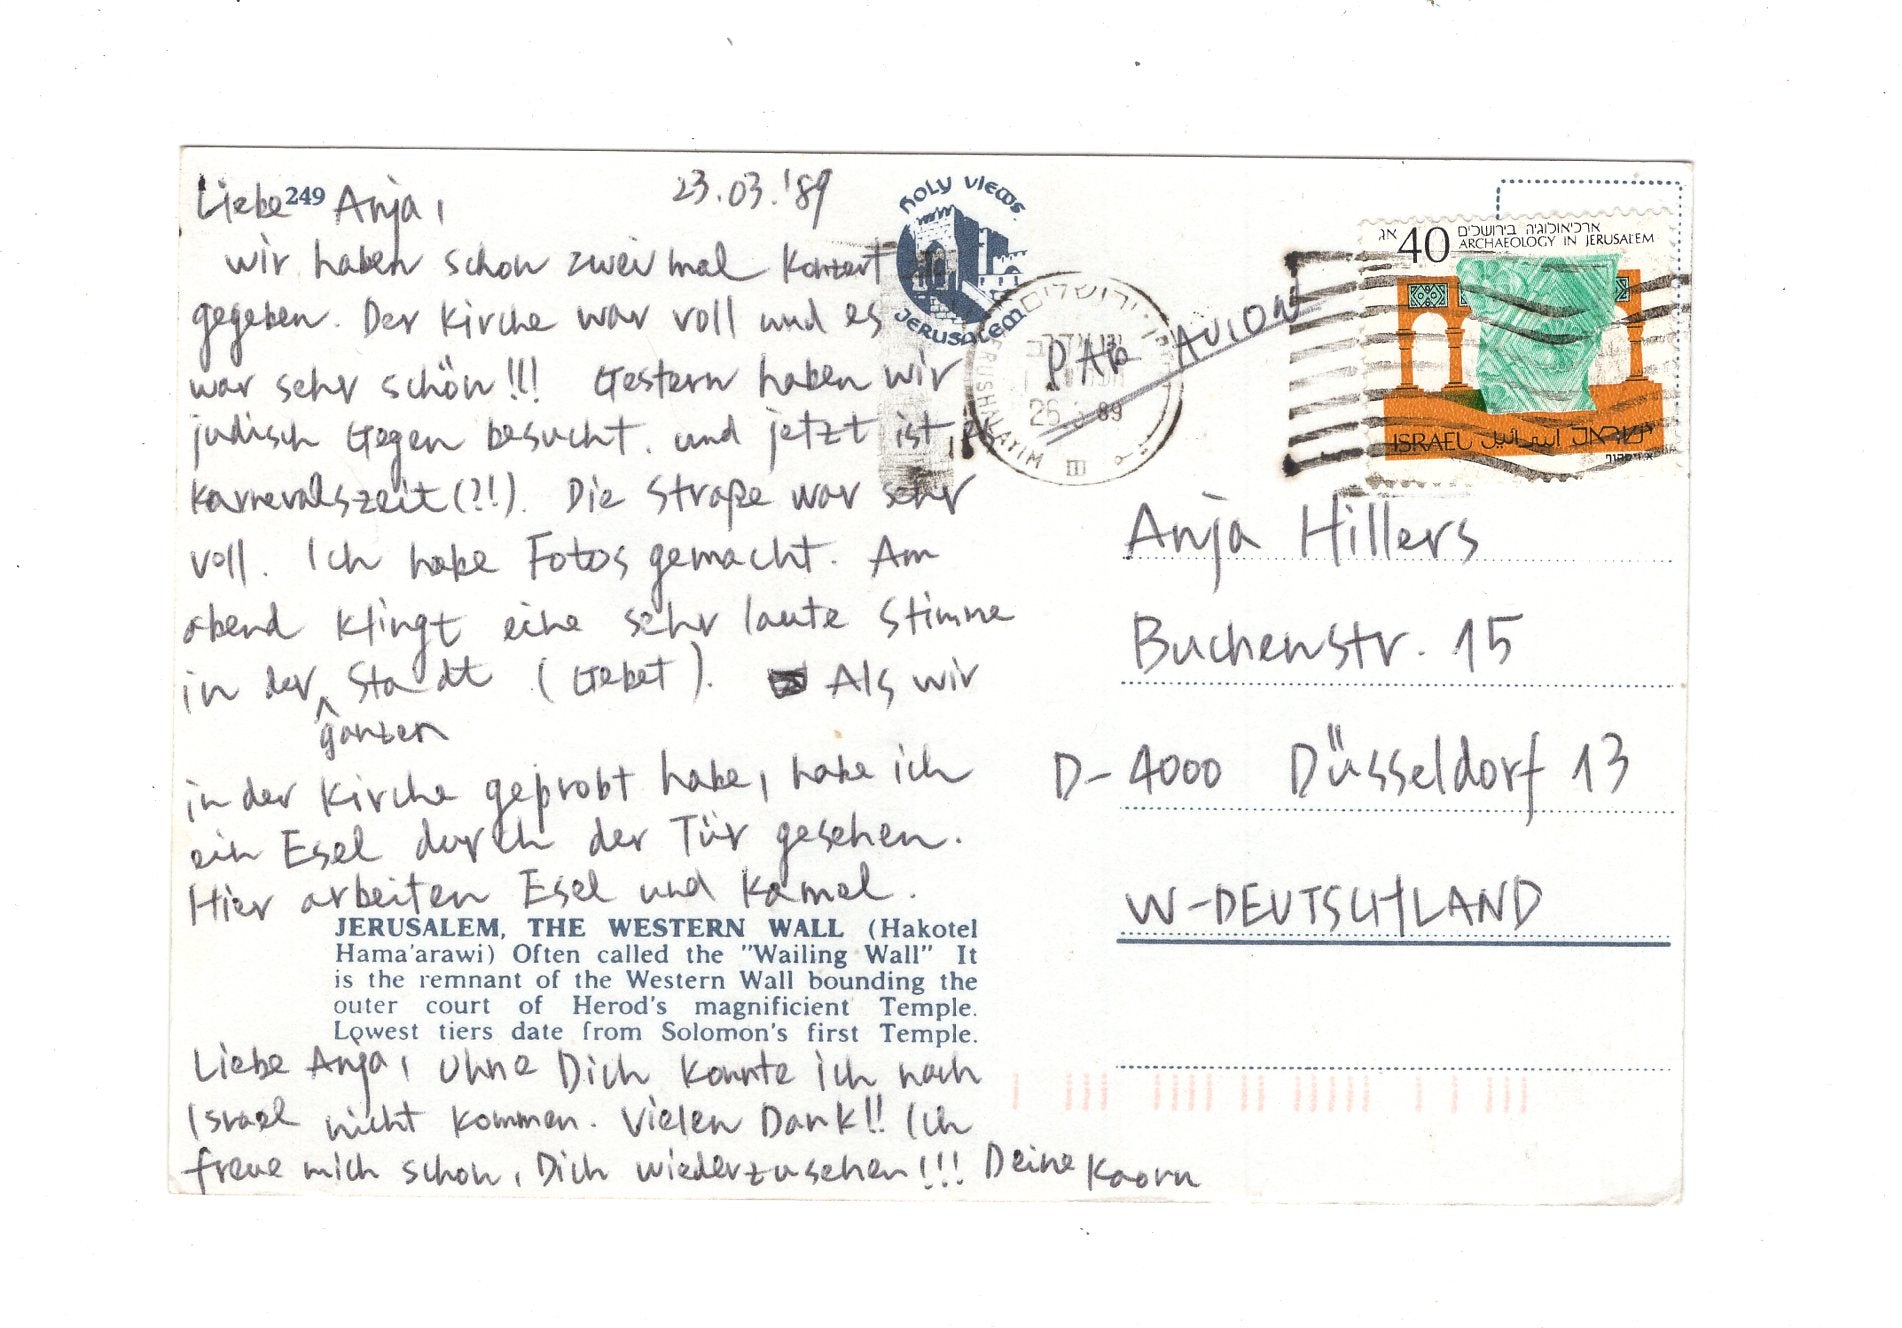 Liebe Anja,
249
23.03.'89
wir haben schon zweimal Konzert
gegeben. Der Kirche war voll und es
war sehr schön!!! Gestern haben wir
judisch Gegen besucht. und jetzt ist es
Karnevalszeit(?!). Die Straße war sehr
voll. Ich habe Fotos gemacht. Am
abend klingt eine sehr laute Stimme
in der ganzen Stadt (Gebet). Als wir
in der Kirche geprobt habe, habe ich
ein Esel durch der Tür gesehen.
Hier arbeiten Esel und Kamel.
JERUSALEM, THE WESTERN WALL (Hakotel
Hama'arawi) Often called the "Wailing Wall" It
is the remnant of the Western Wall bounding the
outer court of Herod's magnificient Temple.
Lowest tiers date from Solomon's first Temple.
Liebe Anja, ohne Dich konnte ich nach
Israel nicht kommen. Vielen Dank!! Ich
freue mich schon, Dich wiederzusehen!!! Deine Kaoru
HOLY VIEWS
JERUSALEM
PAR AVION
ירושלים
26 3 89
YERUSHALAYIM III
אג 40
ארכיאולוגיה בירושלים
ARCHAEOLOGY IN JERUSALEM
ISRAEL اسرائيل ישראל
Anja Hillers
Buchenstr. 15
D-4000 Düsseldorf 13
W-DEUTSCHLAND